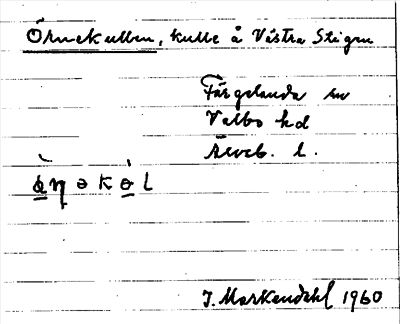 Örnekullen, kulle å Västra Stigen
Färgelanda sn
Valbo hd
Älvsb. l.
ǿ̀ɳəkɵ̀l
J. Markendahl 1960